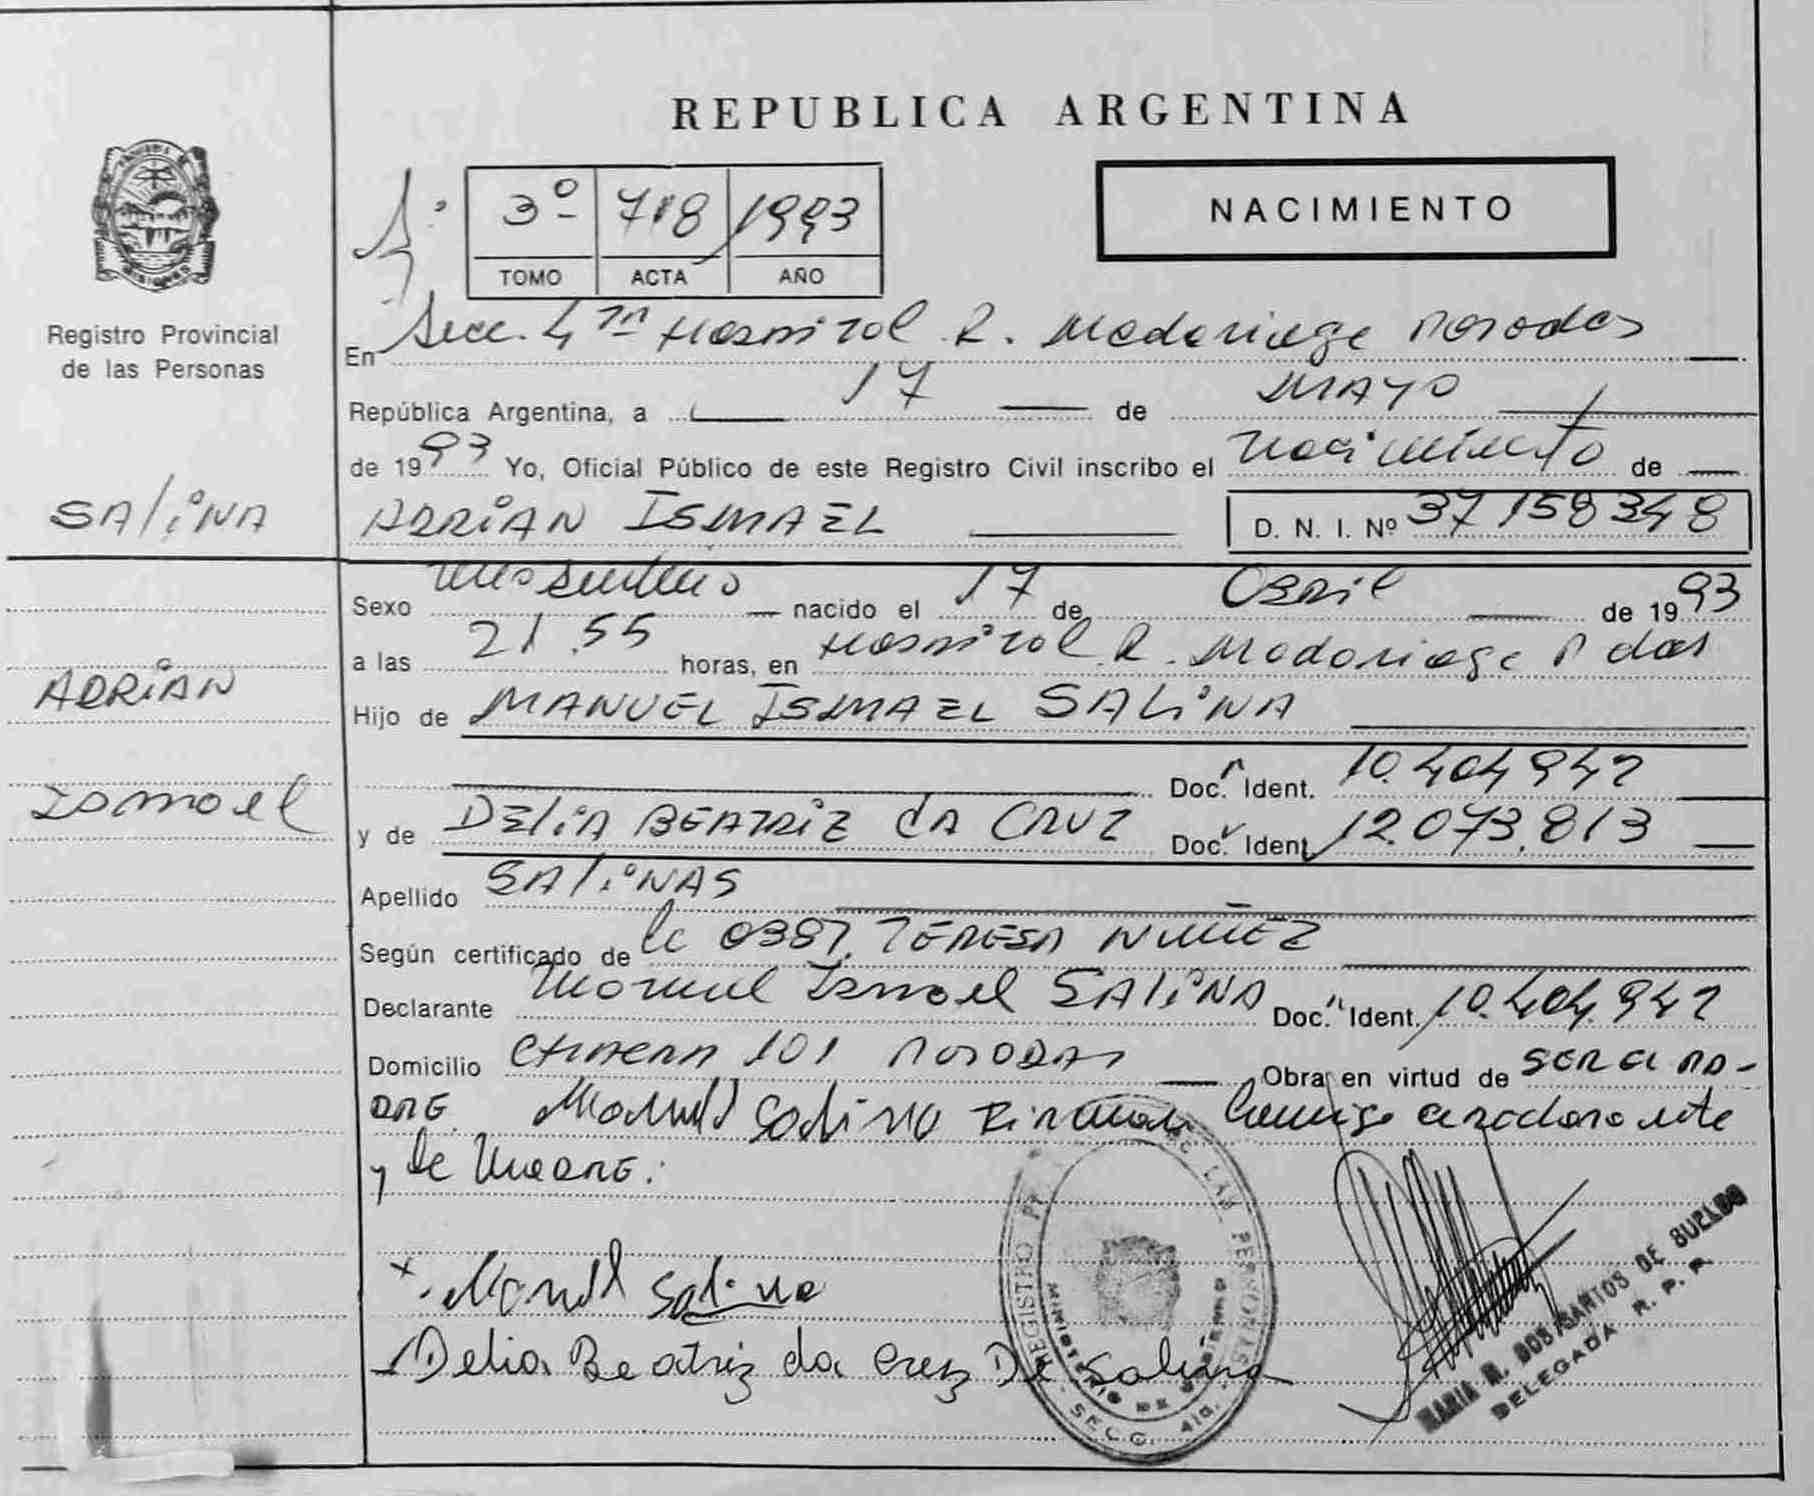 REPUBLICA ARGENTINA
NACIMIENTO
3º 718 1993
TOMO ACTA AÑO
Registro Provincial
de las Personas
En Secc. 4ta Hospital R. Madariaga Posadas
República Argentina, a 17 de MAYO
de 1993 Yo, Oficial Público de este Registro Civil inscribo el Nacimiento de
SALINA
ADRIAN ISMAEL D. N. I. Nº 37158348
Sexo Masculino nacido el 17 de Abril de 1993
a las 21.55 horas, en Hospital R. Madariaga Pdas
ADRIAN
Hijo de MANUEL ISMAEL SALINA
Doc. Ident. 10.404.942
Ismael
y de DELIA BEATRIZ dA CRUZ Doc. Ident. 12.073.813
Apellido SALINAS
Según certificado de la 0387 TERESA NUÑEZ
Declarante Manuel Ismael SALINA Doc. Ident. 10.404.942
Domicilio 101 POSODAS Obra en virtud de SER el PA-
DRE. Manuel Salina Firman Conmigo el declarante
y la MADRE.
Manuel Salina
Delia Beatriz da Cruz De Salina
REGISTRO DE LAS PERSONAS
MINISTERIO DE GOBIERNO
SECC. 4ta.
MARIA R. DOS SANTOS DE BUELDO
DELEGADA R. P. P.